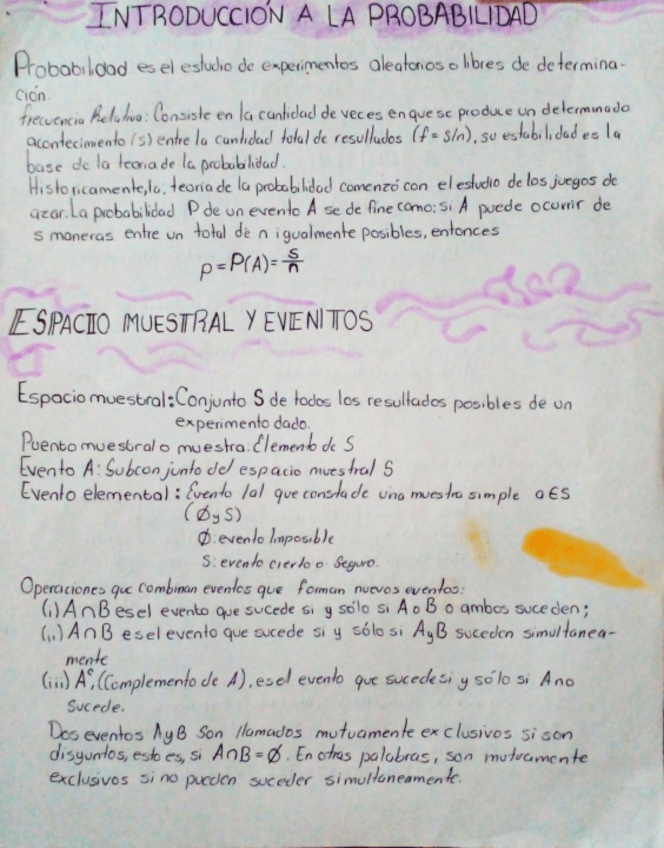 INTRODUCCIÓN A LA PROBABILIDAD
Probabilidad es el estudio de experimentos aleatorios o libres de determina-
ción.
frecuencia Relativa: Consiste en la cantidad de veces en que se produce un determinado
acontecimiento (s) entre la cantidad total de resultados (f = s/n), su estabilidad es la
base de la teoria de la probabilidad.
Historicamente, la teoria de la probabilidad comenzó con el estudio de los juegos de
azar. La probabilidad P de un evento A se define como: si A puede ocurrir de
s maneras entre un total de n igualmente posibles, entonces
p = P(A) = s/n
ESPACIO MUESTRAL Y EVENTOS
Espacio muestral: Conjunto S de todos los resultados posibles de un
experimento dado.
Puento muestral o muestra: Elemento de S
Evento A: Subconjunto del espacio muestral S
Evento elemental: Evento tal que consta de una muestra simple a∈S
(Ø y S)
Ø: evento Imposible
S: evento cierto o Seguro.
Operaciones que combinan eventos que forman nuevos eventos:
(i) A∩B es el evento que sucede si y sólo si A o B o ambos suceden;
(ii) A∩B es el evento que sucede si y sólo si A y B suceden simultanea-
mente
(iii) Aᶜ, (Complemento de A), es el evento que sucede si y sólo si A no
Sucede.
Dos eventos A y B Son llamados mutuamente exclusivos si son
disyuntos, esto es, si A∩B = Ø. En otras palabras, son mutuamente
exclusivos si no pueden suceder simultaneamente.